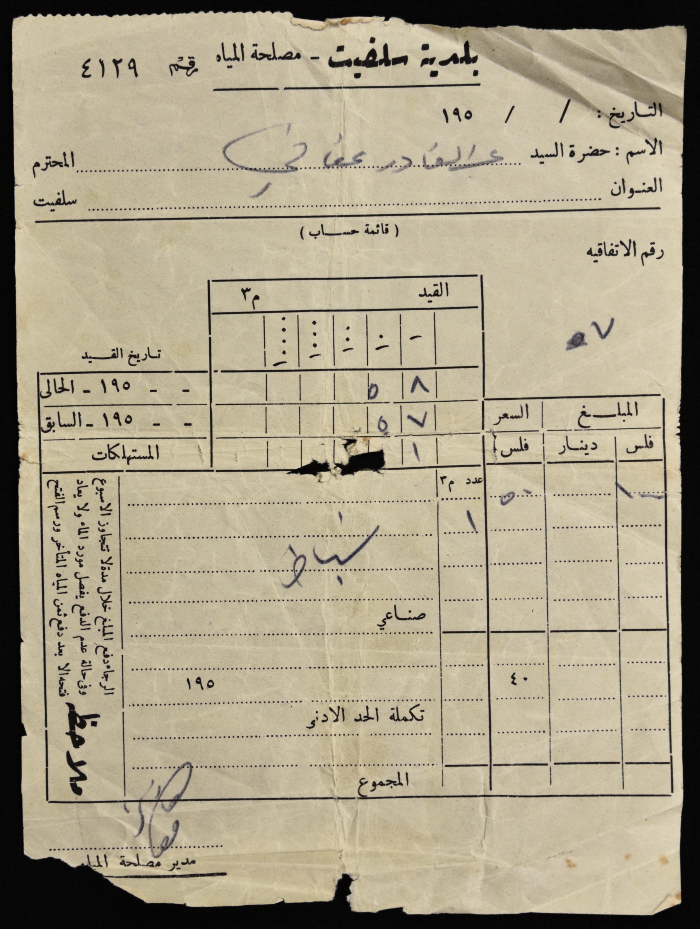 بلدية سلفيت - مصلحة المياه رقم ٤١٢٩
التاريخ : / / ١٩٥
الاسم : حضرة السيد عبد القادر عفانة المحترم
العنوان سلفيت
( قائمة حساب )
رقم الاتفاقيه
٥٧
القيد م٣
تاريخ القيد
- - ١٩٥ - الحالى ٥ ٨
- - ١٩٥ - السابق ٥ ٧
المستهلكات ١
المبلغ السعر
فلس دينار فلس
عدد م٣
٥٠
١
شباط
صناعي
٤٠
١٩٥
تكملة الحد الادنى
المجموع
ملاحظة
الرجاء دفع المبلغ خلال مدة لا تتجاوز الاسبوع
وفي حالة عدم الدفع يفصل مورد الماء ولا يعاد
فتحه الا بعد دفع ثمن المياه المتأخر ورسم الفتح
مدير مصلحة المياه